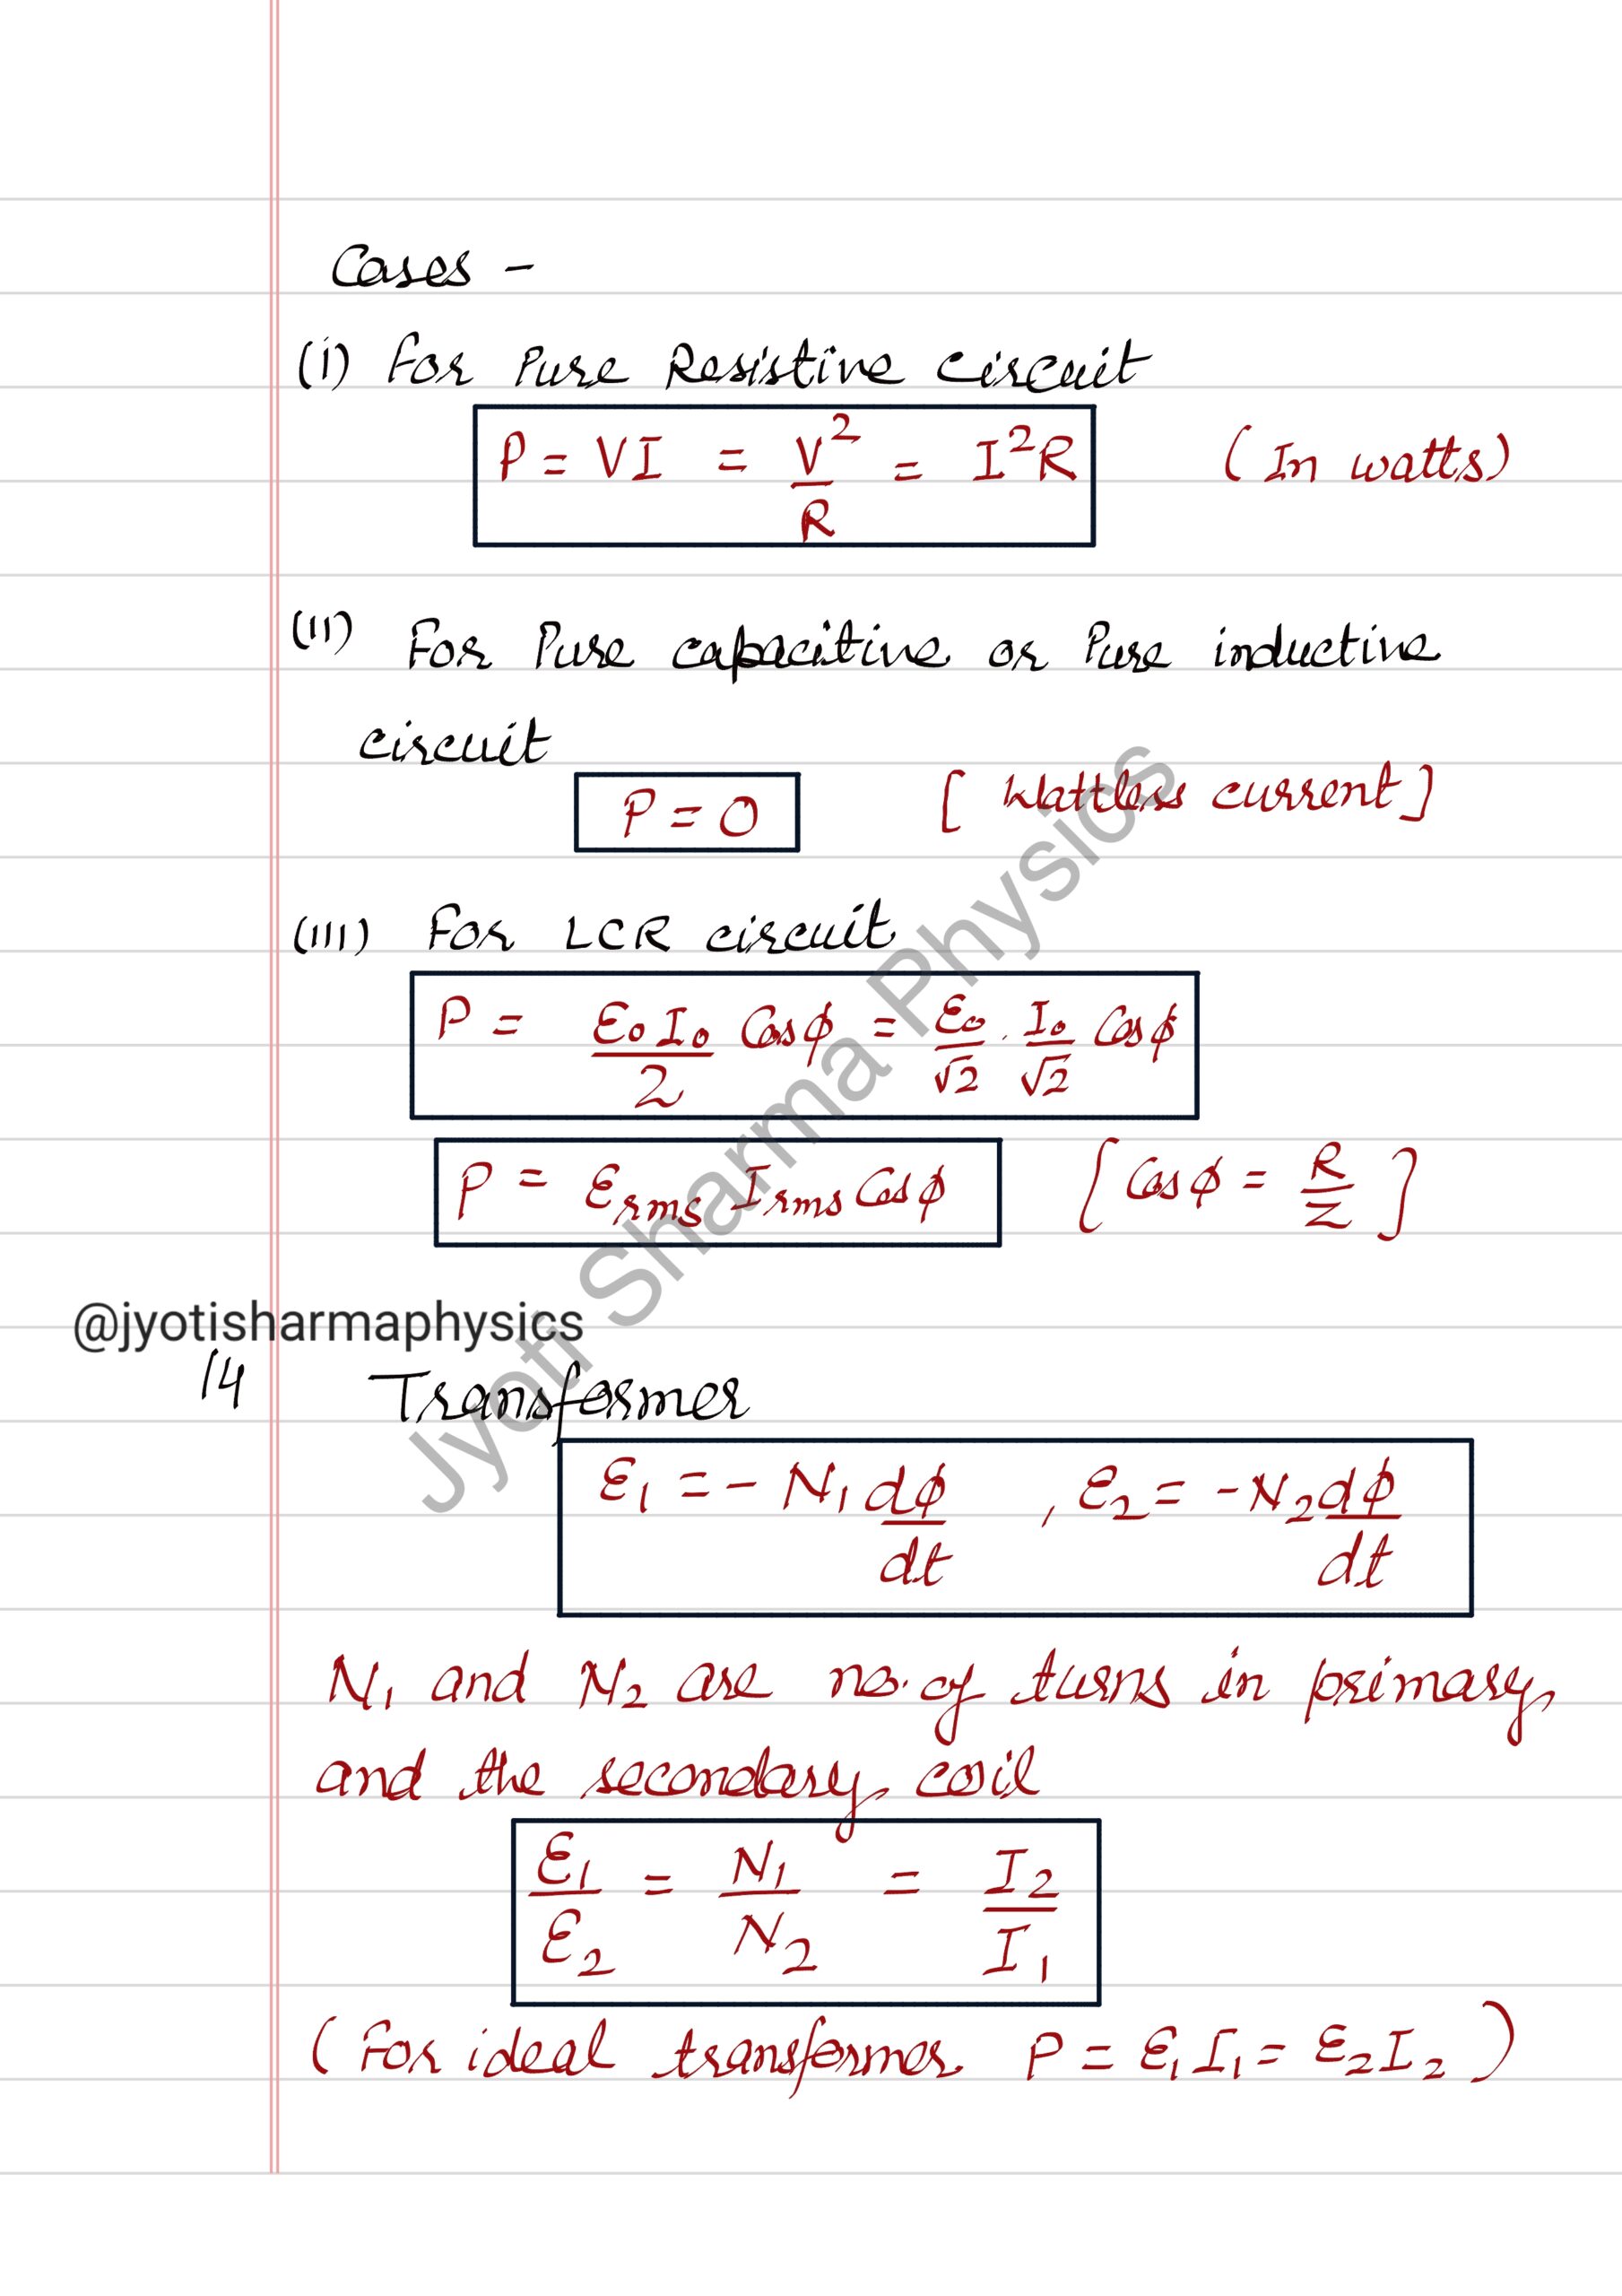 Cases -
(i) For Pure Resistive circuit
P = VI = V²/R = I²R (In watts)
(ii) For Pure capacitive or Pure inductive
circuit
P = 0 [ Wattless current ]
(iii) For LCR circuit
P = ε₀I₀/2 Cosϕ = ε₀/√2 . I₀/√2 Cosϕ
P = εrms Irms Cosϕ [ Cosϕ = R/Z ]
@jyotisharmaphysics
14 Transformer
ε₁ = - N₁ dϕ/dt , ε₂ = - N₂ dϕ/dt
N₁ and N₂ are no. of turns in primary
and the secondary coil
ε₁/ε₂ = N₁/N₂ = I₂/I₁
(For ideal transformer P = ε₁I₁ = ε₂I₂)
Jyoti Sharma Physics